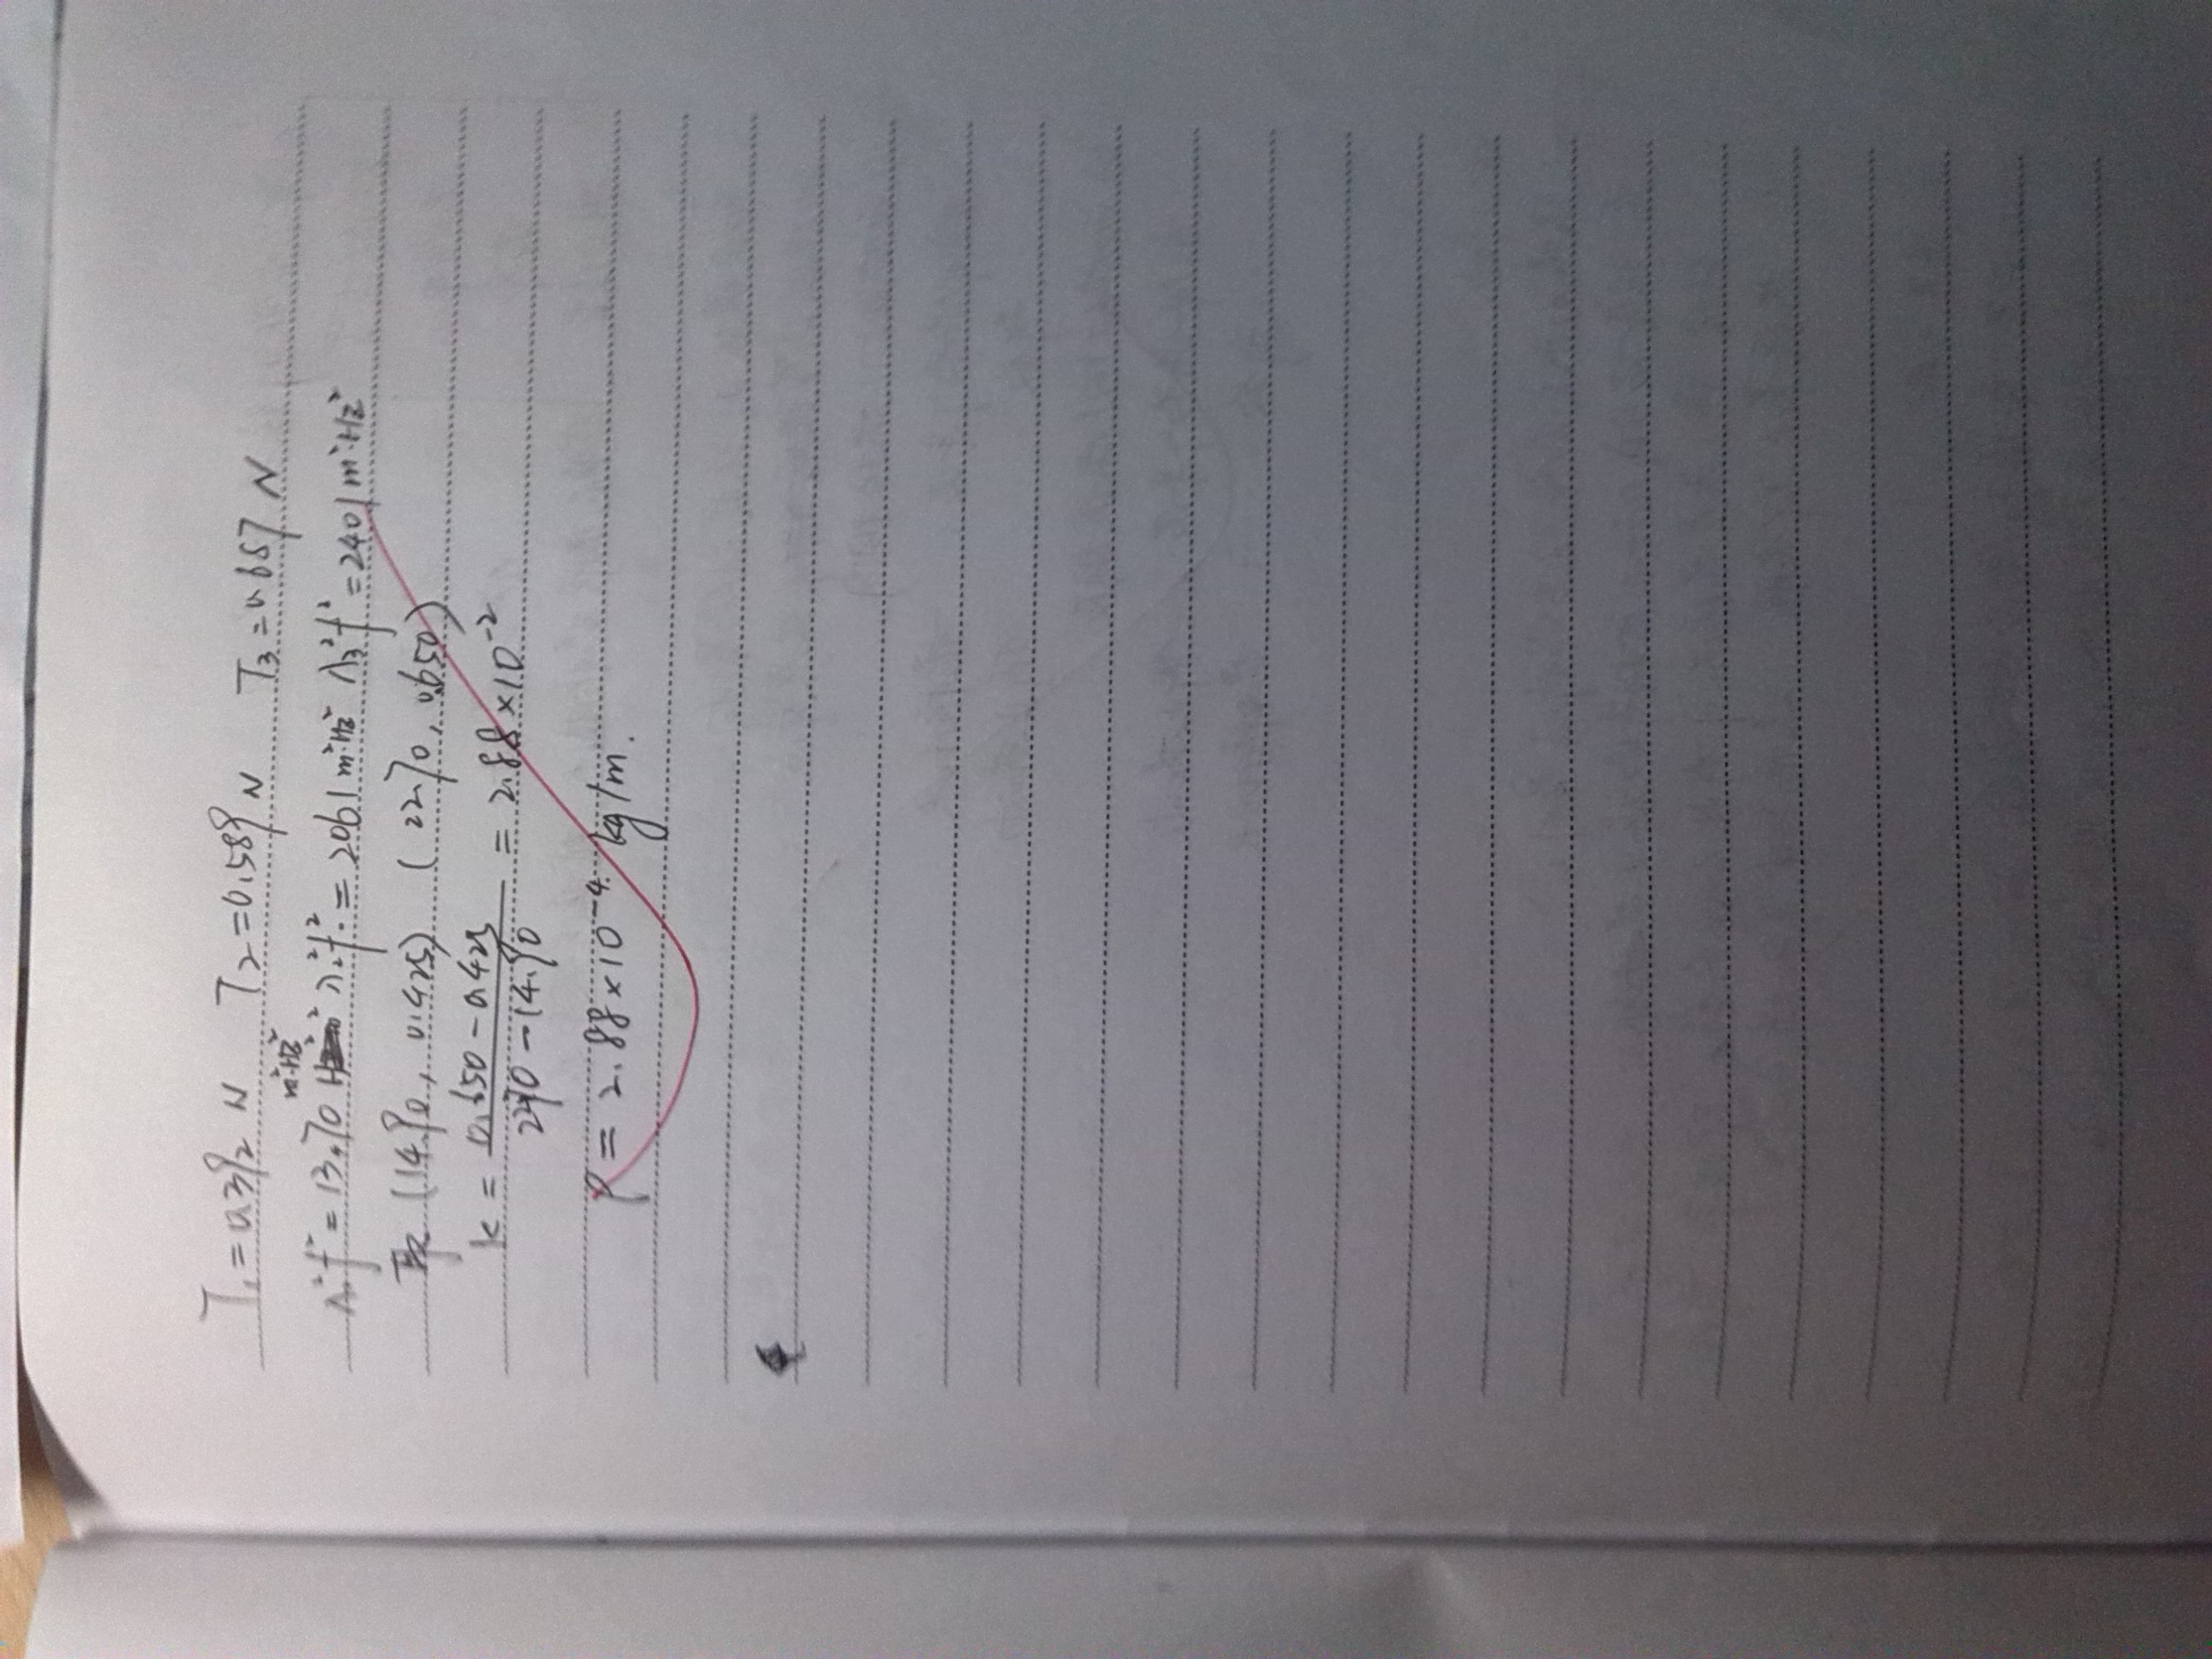 T₁=0.392 N T₂=0.589 N T₃=0.687 N
m²·Hz²
λ₁²f²=1370 λ₂²f²=2061 m²·Hz² λ₃²f²=2401 m²·Hz²
取 (1490, 0.425) (2270, 0.650)
k = (0.650-0.425)/(2270-1490) = 2.88×10⁻²
ρ = 2.88×10⁻⁴ kg/m.